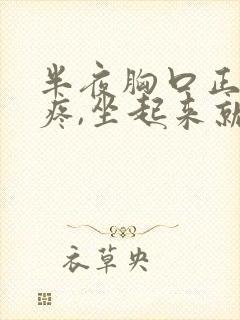 半夜胸口正
疼,坐起来就
衣草央